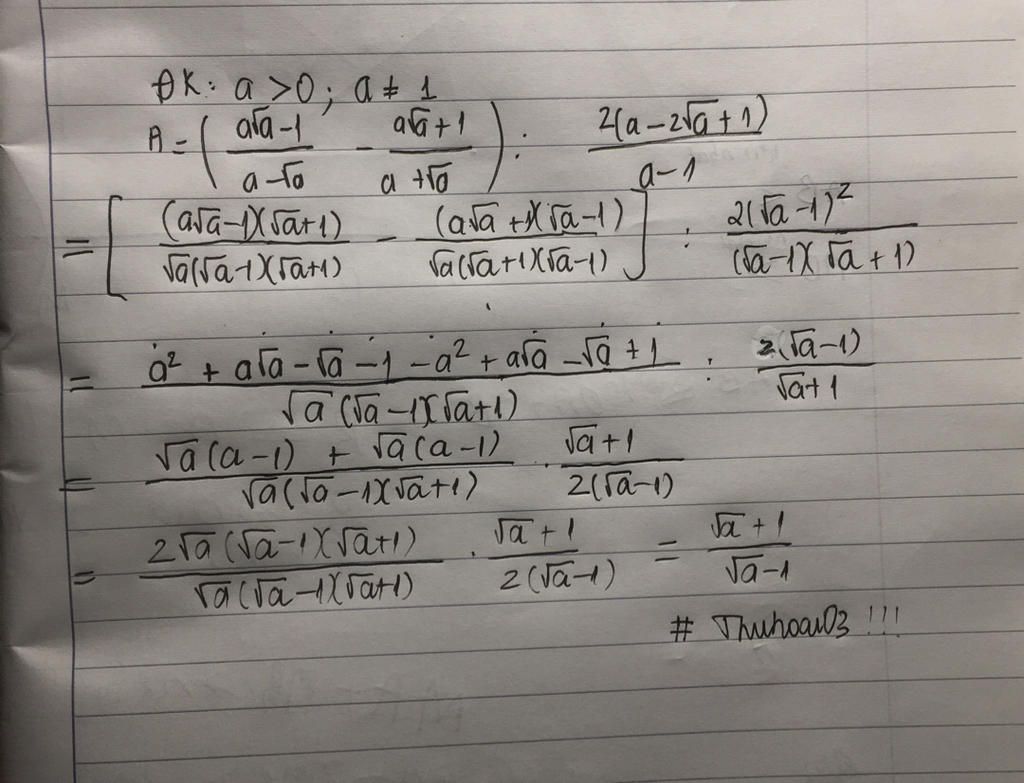 ĐK: a > 0; a ≠ 1
A = ( (a√a - 1)/(a - √a) - (a√a + 1)/(a + √a) ) : 2(a - 2√a + 1)/(a - 1)
= [ (a√a - 1)(√a + 1)/(√a(√a - 1)(√a + 1)) - (a√a + 1)(√a - 1)/(√a(√a + 1)(√a - 1)) ] : 2(√a - 1)²/((√a - 1)(√a + 1))
= (a² + a√a - √a - 1 - a² + a√a - √a + 1)/(√a(√a - 1)(√a + 1)) : 2(√a - 1)/(√a + 1)
= (√a(a - 1) + √a(a - 1))/(√a(√a - 1)(√a + 1)) . (√a + 1)/(2(√a - 1))
= 2√a(√a - 1)(√a + 1)/(√a(√a - 1)(√a + 1)) . (√a + 1)/(2(√a - 1)) = (√a + 1)/(√a - 1)
# Thuhoai03 !!!